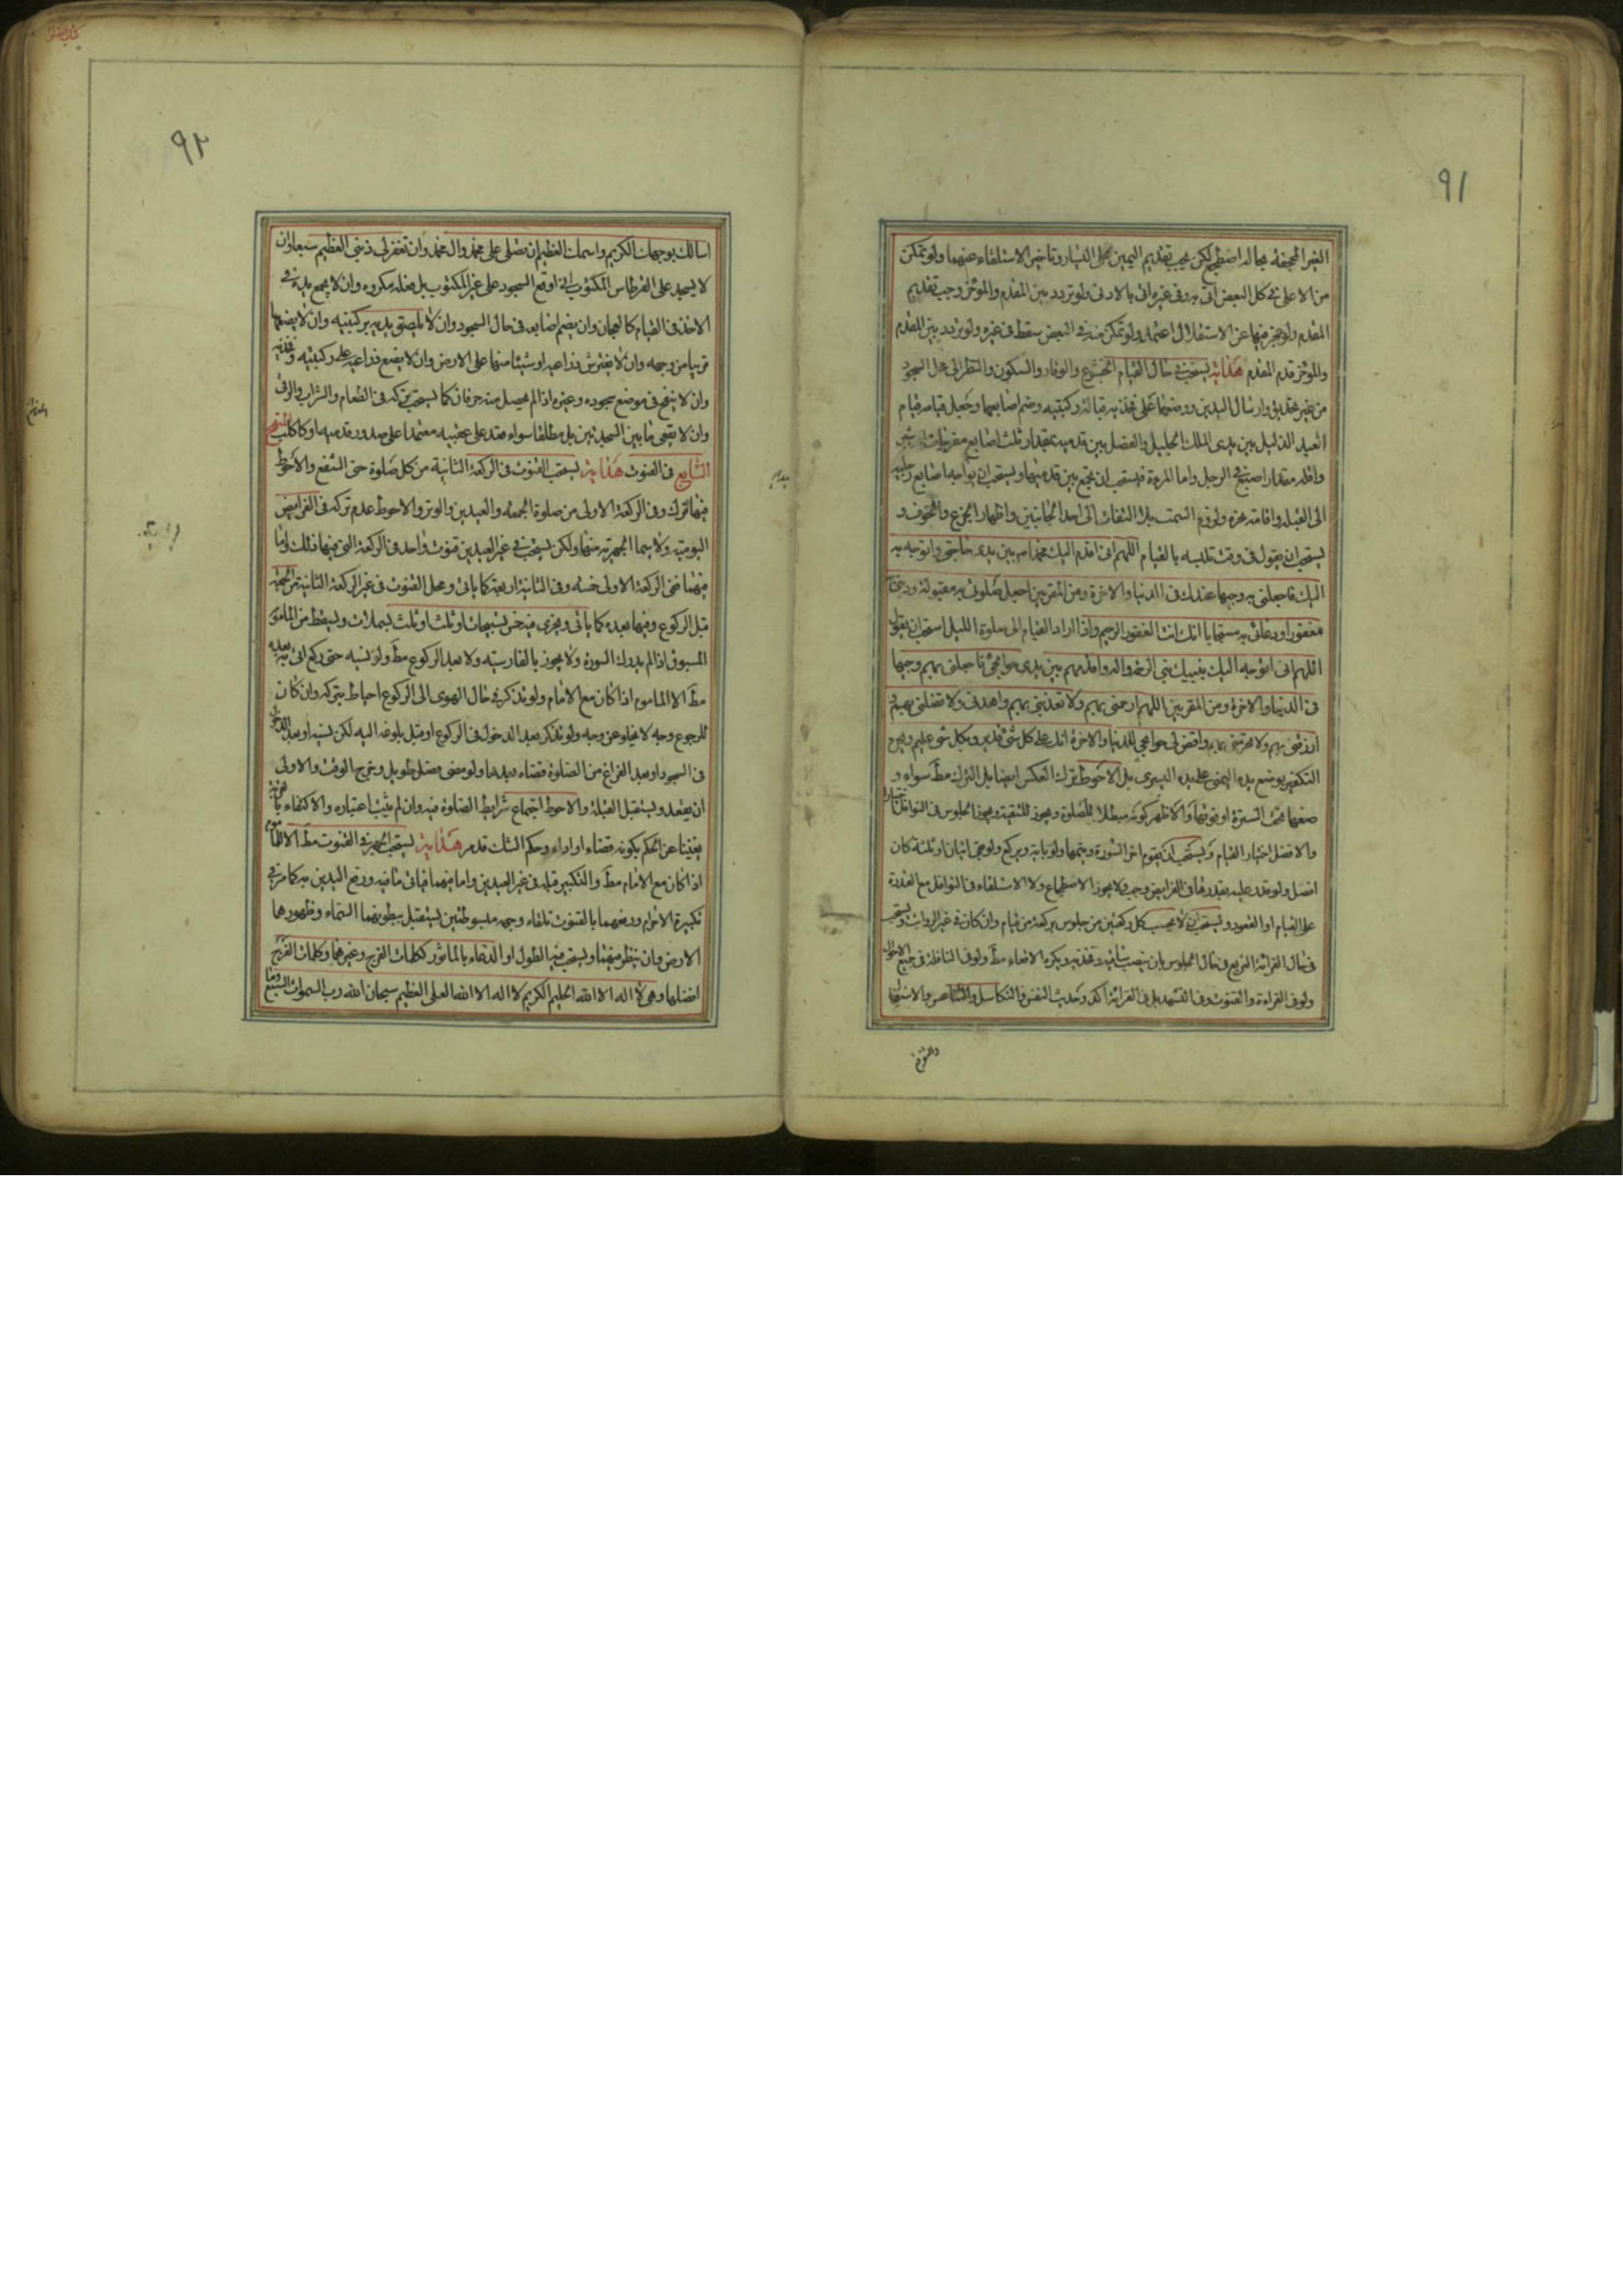 ٩١
الغير المجحفة بحاله اضطجع لكن يجب تقديم اليمين على اليسار وتاخير الاستلقاء عنهما ولو تمكن
من الاعلى في كل البعض اتى به وفي غيره اتى بالادنى ولو تردد بين المقدم والموخر وجب تقديم
المقدم ولو عجز فيها عن الاستقلال اعتمد ولو تمكن منه في البعض سقط في غيره ولو تردد بين المقدم
والموخر قدم المقدم هداية يستحب في حال القيام الخشوع والوقار والسكون والنظر الى محل السجود
من غير تحديق وارسال اليدين ووضعهما على فخذيه قبالة ركبتيه وضم اصابعهما وجعل قيامه قيام
العبد الذليل بين يدى الملك الجليل والفصل بين قدميه بمقدار ثلث اصابع مفرجات الى شبر
واقله مقدار اصبع في الرجل واما المرءة فيستحب ان تجمع بين قدميها ويستحب ان يواجه اصابع رجليه
الى القبلة واقامة نحره ولزوم السمت بلا التفات الى احد الجانبين واظهار الجزع والخوف و
يستحب ان يقول في وقت تلبسه بالقيام اللهم انى اقدم اليك محمدا بين يدى حاجتى واتوجه به
اليك فاجعلنى به وجيها عندك في الدنيا والاخرة ومن المقربين اجعل صلوتى به مقبولة وذنبى
مغفورا ودعائى به مستجابا انك انت الغفور الرحيم واذا اراد القيام الى صلوة الليل استحب ان يقول
اللهم انى اتوجه اليك بنبيك نبى الرحمة واله واقدمهم بين يدى حوائجى فاجعلنى بهم وجيها
في الدنيا والاخرة ومن المقربين اللهم ارحمنى بهم ولا تعذبنى بهم واهدنى بهم ولا تضلنى بهم و
ارزقنى بهم ولا تحرمنى بهم واقض لى حوائجى للدنيا والاخرة انك على كل شىء قدير وبكل شىء عليم
التكفير بوضع يده اليمنى على يده اليسرى بل الاحوط ترك العكس ايضا بل الترك مط سواء و
ضعهما تحت السترة او فوقها والاظهر كونه مبطلا للصلوة ويجوز للتقية ويجوز الجلوس في النوافل
والافضل اختيار القيام ويستحب ان يقوم اخر السورة ويتمها ولو باية ويركع ولو بقى ايتان او ثلثة كان
افضل ولو قدر عليه بقدرها في الفرايض وجب ولا يجوز الاضطجاع ولا الاستلقاء في النوافل مع القدرة
على القيام او القعود ويستحب ان يحسب كل ركعتين من جلوس بركعة من قيام وان كان في غير الرواتب ويستحب
في حال القرائة التربع في حال الجلوس بان ينصب ساقيه وفخذيه ويكره الاقعاء مط ولو في النافلة في جميع الاحوال
ولو في القراءة والقنوت وفي التشهد بل في القرائة اكد وحديث النفس والتكاسل والتقاصر والاستعجال
٩٢
اسالك بوجهك الكريم واسمك العظيم ان تصلى على محمد وال محمد وان تغفر لى ذنبى العظيم سبعا وان
لا يسجد على القرطاس المكتوب اذا اوقع السجود على غير المكتوب بل فعله مكروه وان لا يجمع يديه في
الاخذ في القيام كالعجان وان يضم اصابعه في حال السجود وان لا يلصق يديه بركبتيه وان لا يضعهما
قريبا من وجهه وان لا يفترش ذراعيه او شيئا منهما على الارض وان لا يضع ذراعيه على ركبتيه وفخذيه
وان لا ينفخ في موضع سجوده وغيره اذا لم يحصل منه حرفان كما يستحب تركه في الطعام والشراب والرقى
وان لا يقعى ما بين السجدتين بل مطلقا سواء قعد على عقبيه معتمدا على صدور قدميه او كاكلب المنهج
السابع في القنوت هداية يستحب القنوت في الركعة الثانية من كل صلوة حتى الشفع والاحوط
فيها الترك وفي الركعة الاولى من صلوة الجمعة والعيدين والوتر والاحوط عدم تركه في الفرايض
اليومية ولا سيما الجهرية منها ولكن يستحب في غير العيدين قنوت واحد في الركعة التى فيها ذلك واما
فيهما ففي الركعة الاولى خسة وفي الثانية اربعة كما ياتى ومحل القنوت في غير الركعة الثانية من الجمعة
قبل الركوع وفيها بعده كما ياتى ويجزى فيه خمس تسبيحات او ثلث او ثلث بسملات ويسقط من الماموم
المسبوق اذا لم يدرك السورة ولا يجوز بالفارسية ولا بعد الركوع مط ولو نسيه حتى ركع اتى به بعده
مط الا الماموم اذا كان مع الامام ولو تذكر في حال الهوى الى الركوع احتاط بتركه وان كان
للرجوع وجه لا يخلو عن وجه ولو تذكر بعد الدخول في الركوع او قبل بلوغه اليه لكن نسيه او بعد
في السجود او بعد الفراغ من الصلوة قضاه بعدها ولو مضى فصل طويل وخرج الوقت والاولى
ان يقعد ويستقبل القبلة والاحوط اجتماع شرايط الصلوة فيه وان لم يثبت اعتباره والاكتفاء بالقربة
يغنينا عن الحكم بكونه قضاء او اداء وحكم الشك قد مر هداية يستحب الجهر في القنوت مط الا للماموم
اذا كان مع الامام مط والتكبير قبله في غير العيدين واما فيهما فياتى ما فيه ورفع اليدين به كما مر في
تكبيرة الاحرام ورفعهما بالقنوت تلقاء وجهه مبسوطتين يستقبل ببطونهما السماء وظهورهما
الارض وان ينظر فيهما ويستحب فيه الطول او الدعاء بالماثور ككلمات الفرج وغيرها وكلمات الفرج
افضلها وهى لا اله الا الله الحليم الكريم لا اله الا الله العلى العظيم سبحان الله رب السموات السبع